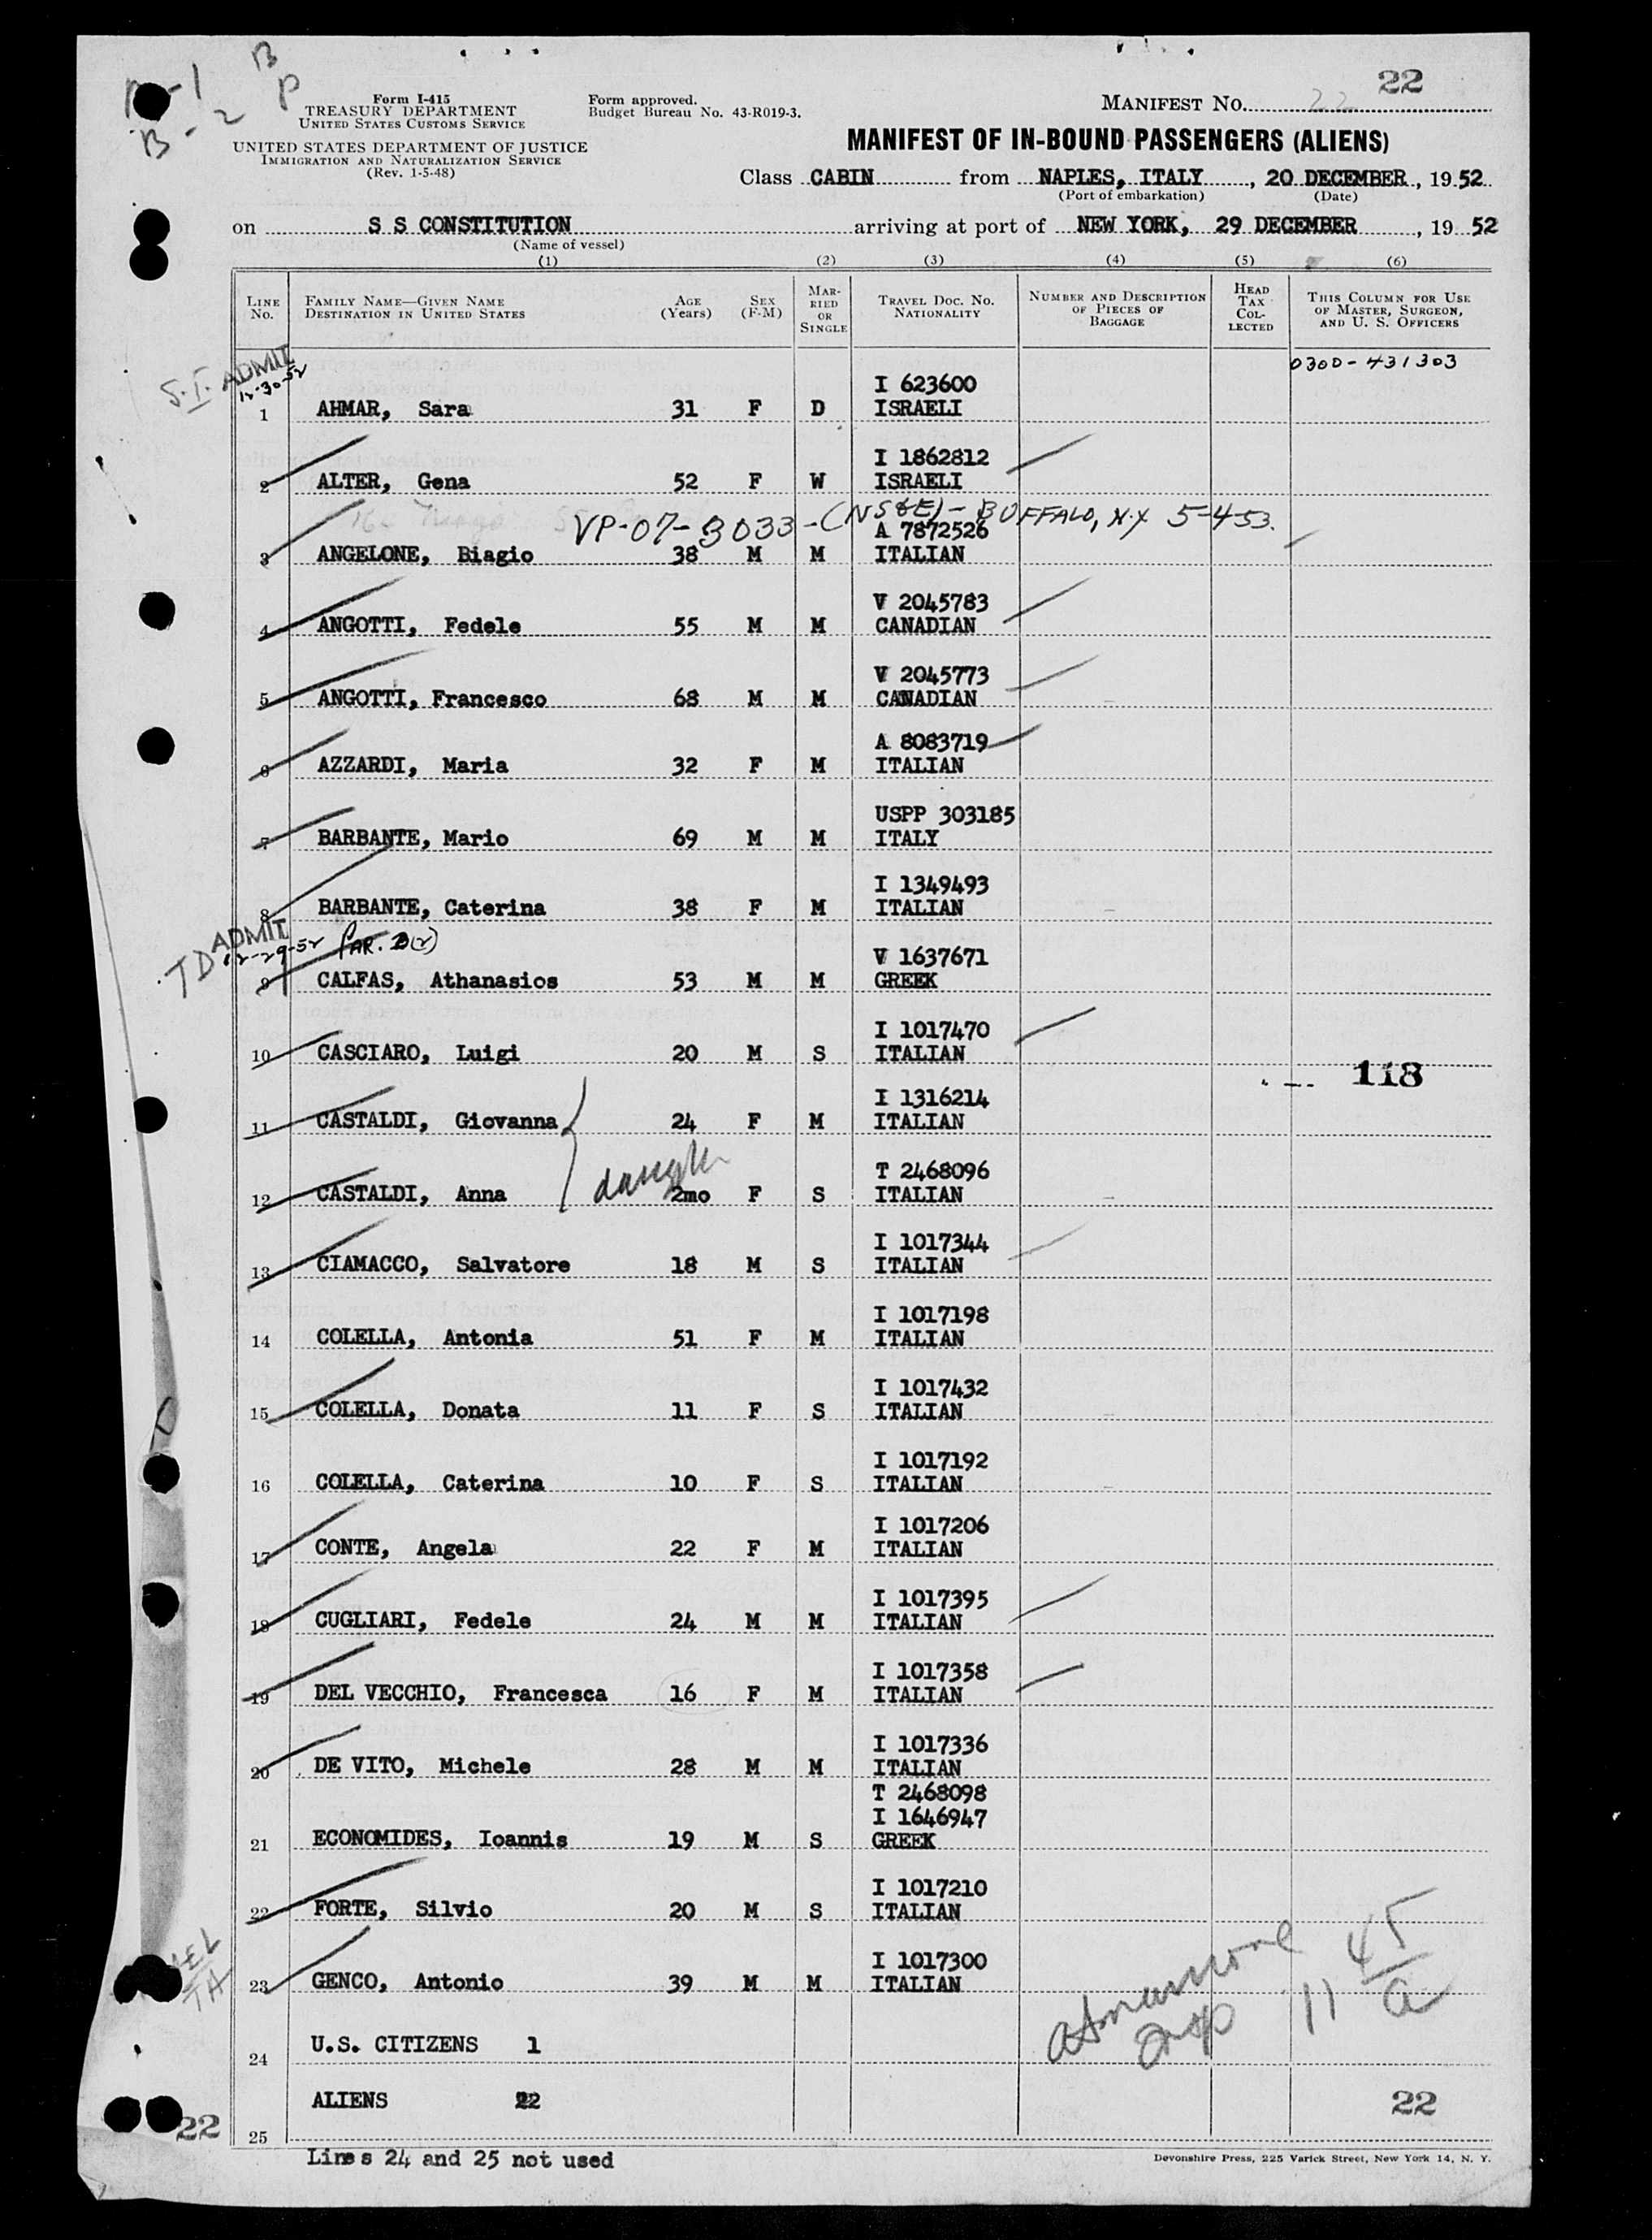 22
B
P
-1
B-2
Form I-415
TREASURY DEPARTMENT
UNITED STATES CUSTOMS SERVICE
UNITED STATES DEPARTMENT OF JUSTICE
IMMIGRATION AND NATURALIZATION SERVICE
(Rev. 1-5-48)
Form approved.
Budget Bureau No. 43-R019-3.
MANIFEST NO. 22
MANIFEST OF IN-BOUND PASSENGERS (ALIENS)
Class CABIN from NAPLES, ITALY, 20 DECEMBER, 1952
(Port of embarkation) (Date)
on S S CONSTITUTION arriving at port of NEW YORK, 29 DECEMBER, 19 52
(Name of vessel)
(1) (2) (3) (4) (5) (6)
LINE No. FAMILY NAME—GIVEN NAME DESTINATION IN UNITED STATES AGE (Years) SEX (F-M) MARRIED OR SINGLE TRAVEL DOC. NO. NATIONALITY NUMBER AND DESCRIPTION OF PIECES OF BAGGAGE HEAD TAX COLLECTED THIS COLUMN FOR USE OF MASTER, SURGEON, AND U. S. OFFICERS
0300-431303
S.I. ADMIT
12-30-52
I 623600
1 AHMAR, Sara 31 F D ISRAELI
I 1862812
2 ALTER, Gena 52 F W ISRAELI
VP-07-3033-(NS&E)- BUFFALO, N.Y 5-4-53.
A 7872526
3 ANGELONE, Biagio 38 M M ITALIAN
V 2045783
4 ANGOTTI, Fedele 55 M M CANADIAN
V 2045773
5 ANGOTTI, Francesco 68 M M CANADIAN
A 8083719
6 AZZARDI, Maria 32 F M ITALIAN
USPP 303185
7 BARBANTE, Mario 69 M M ITALY
I 1349493
8 BARBANTE, Caterina 38 F M ITALIAN
TD ADMIT
12-29-52 PAR. 3(2)
V 1637671
9 CALFAS, Athanasios 53 M M GREEK
I 1017470
10 CASCIARO, Luigi 20 M S ITALIAN
118
I 1316214
11 CASTALDI, Giovanna 24 F M ITALIAN
T 2468096
12 CASTALDI, Anna 2mo F S ITALIAN
I 1017344
13 CIAMACCO, Salvatore 18 M S ITALIAN
I 1017198
14 COLELLA, Antonia 51 F M ITALIAN
I 1017432
15 COLELLA, Donata 11 F S ITALIAN
I 1017192
16 COLELLA, Caterina 10 F S ITALIAN
I 1017206
17 CONTE, Angela 22 F M ITALIAN
I 1017395
18 CUGLIARI, Fedele 24 M M ITALIAN
I 1017358
19 DEL VECCHIO, Francesca 16 F M ITALIAN
I 1017336
20 DE VITO, Michele 28 M M ITALIAN
T 2468098
I 1646947
21 ECONOMIDES, Ioannis 19 M S GREEK
I 1017210
22 FORTE, Silvio 20 M S ITALIAN
I 1017300
23 GENCO, Antonio 39 M M ITALIAN
11 45
a
24 U.S. CITIZENS 1
ALIENS 22
22
22
25
Lines 24 and 25 not used
Devonshire Press, 225 Varick Street, New York 14, N. Y.